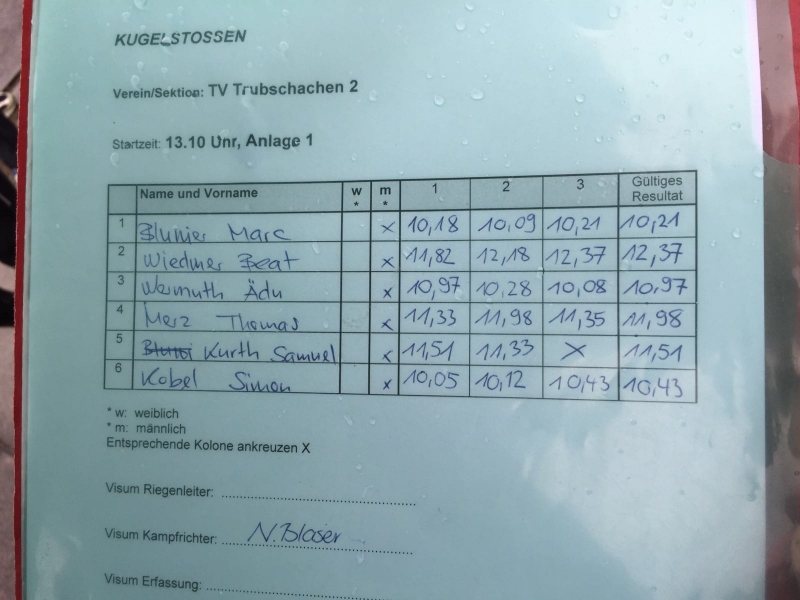 KUGELSTOSSEN
Verein/Sektion: TV Trubschachen 2
Startzeit: 13.10 Uhr, Anlage 1
Name und Vorname w * m * 1 2 3 Gültiges Resultat
1 Blunier Marc x 10,18 10,09 10,21 10,21
2 Wiedmer Beat x 11,82 12,18 12,37 12,37
3 Wermuth Ädu x 10,97 10,28 10,08 10,97
4 Merz Thomas x 11,33 11,98 11,35 11,98
5 Kurth Samuel x 11,51 11,33 X 11,51
6 Kobel Simon x 10,05 10,12 10,43 10,43
* w: weiblich
* m: männlich
Entsprechende Kolone ankreuzen X
Visum Riegenleiter:
Visum Kampfrichter: N. Blaser
Visum Erfassung: